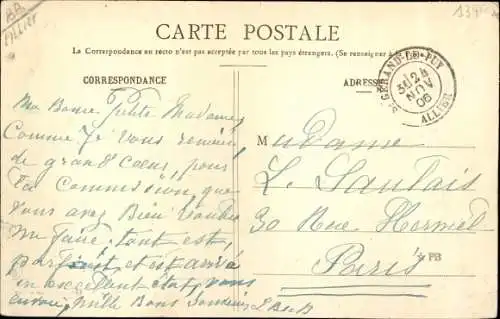 AR
Allier
CARTE POSTALE
La Correspondance au recto n'est pas acceptée par tous les pays étrangers. (Se renseigner à la Poste)
CORRESPONDANCE
ADRESSE
St GERAND-LE-PUY
24
NOV
06
ALLIER
Ma Bonne petite Madame
Comme Je vous remercie
de grand Cœur, pour
la Commission, que
vous avez Bien voulu
me faire. tout est,
parfait, et est arrivé
en excellent état, vous
envoie, mille Bons Souvenirs
Madame
L. Lautais
30 Rue Hermel
Paris